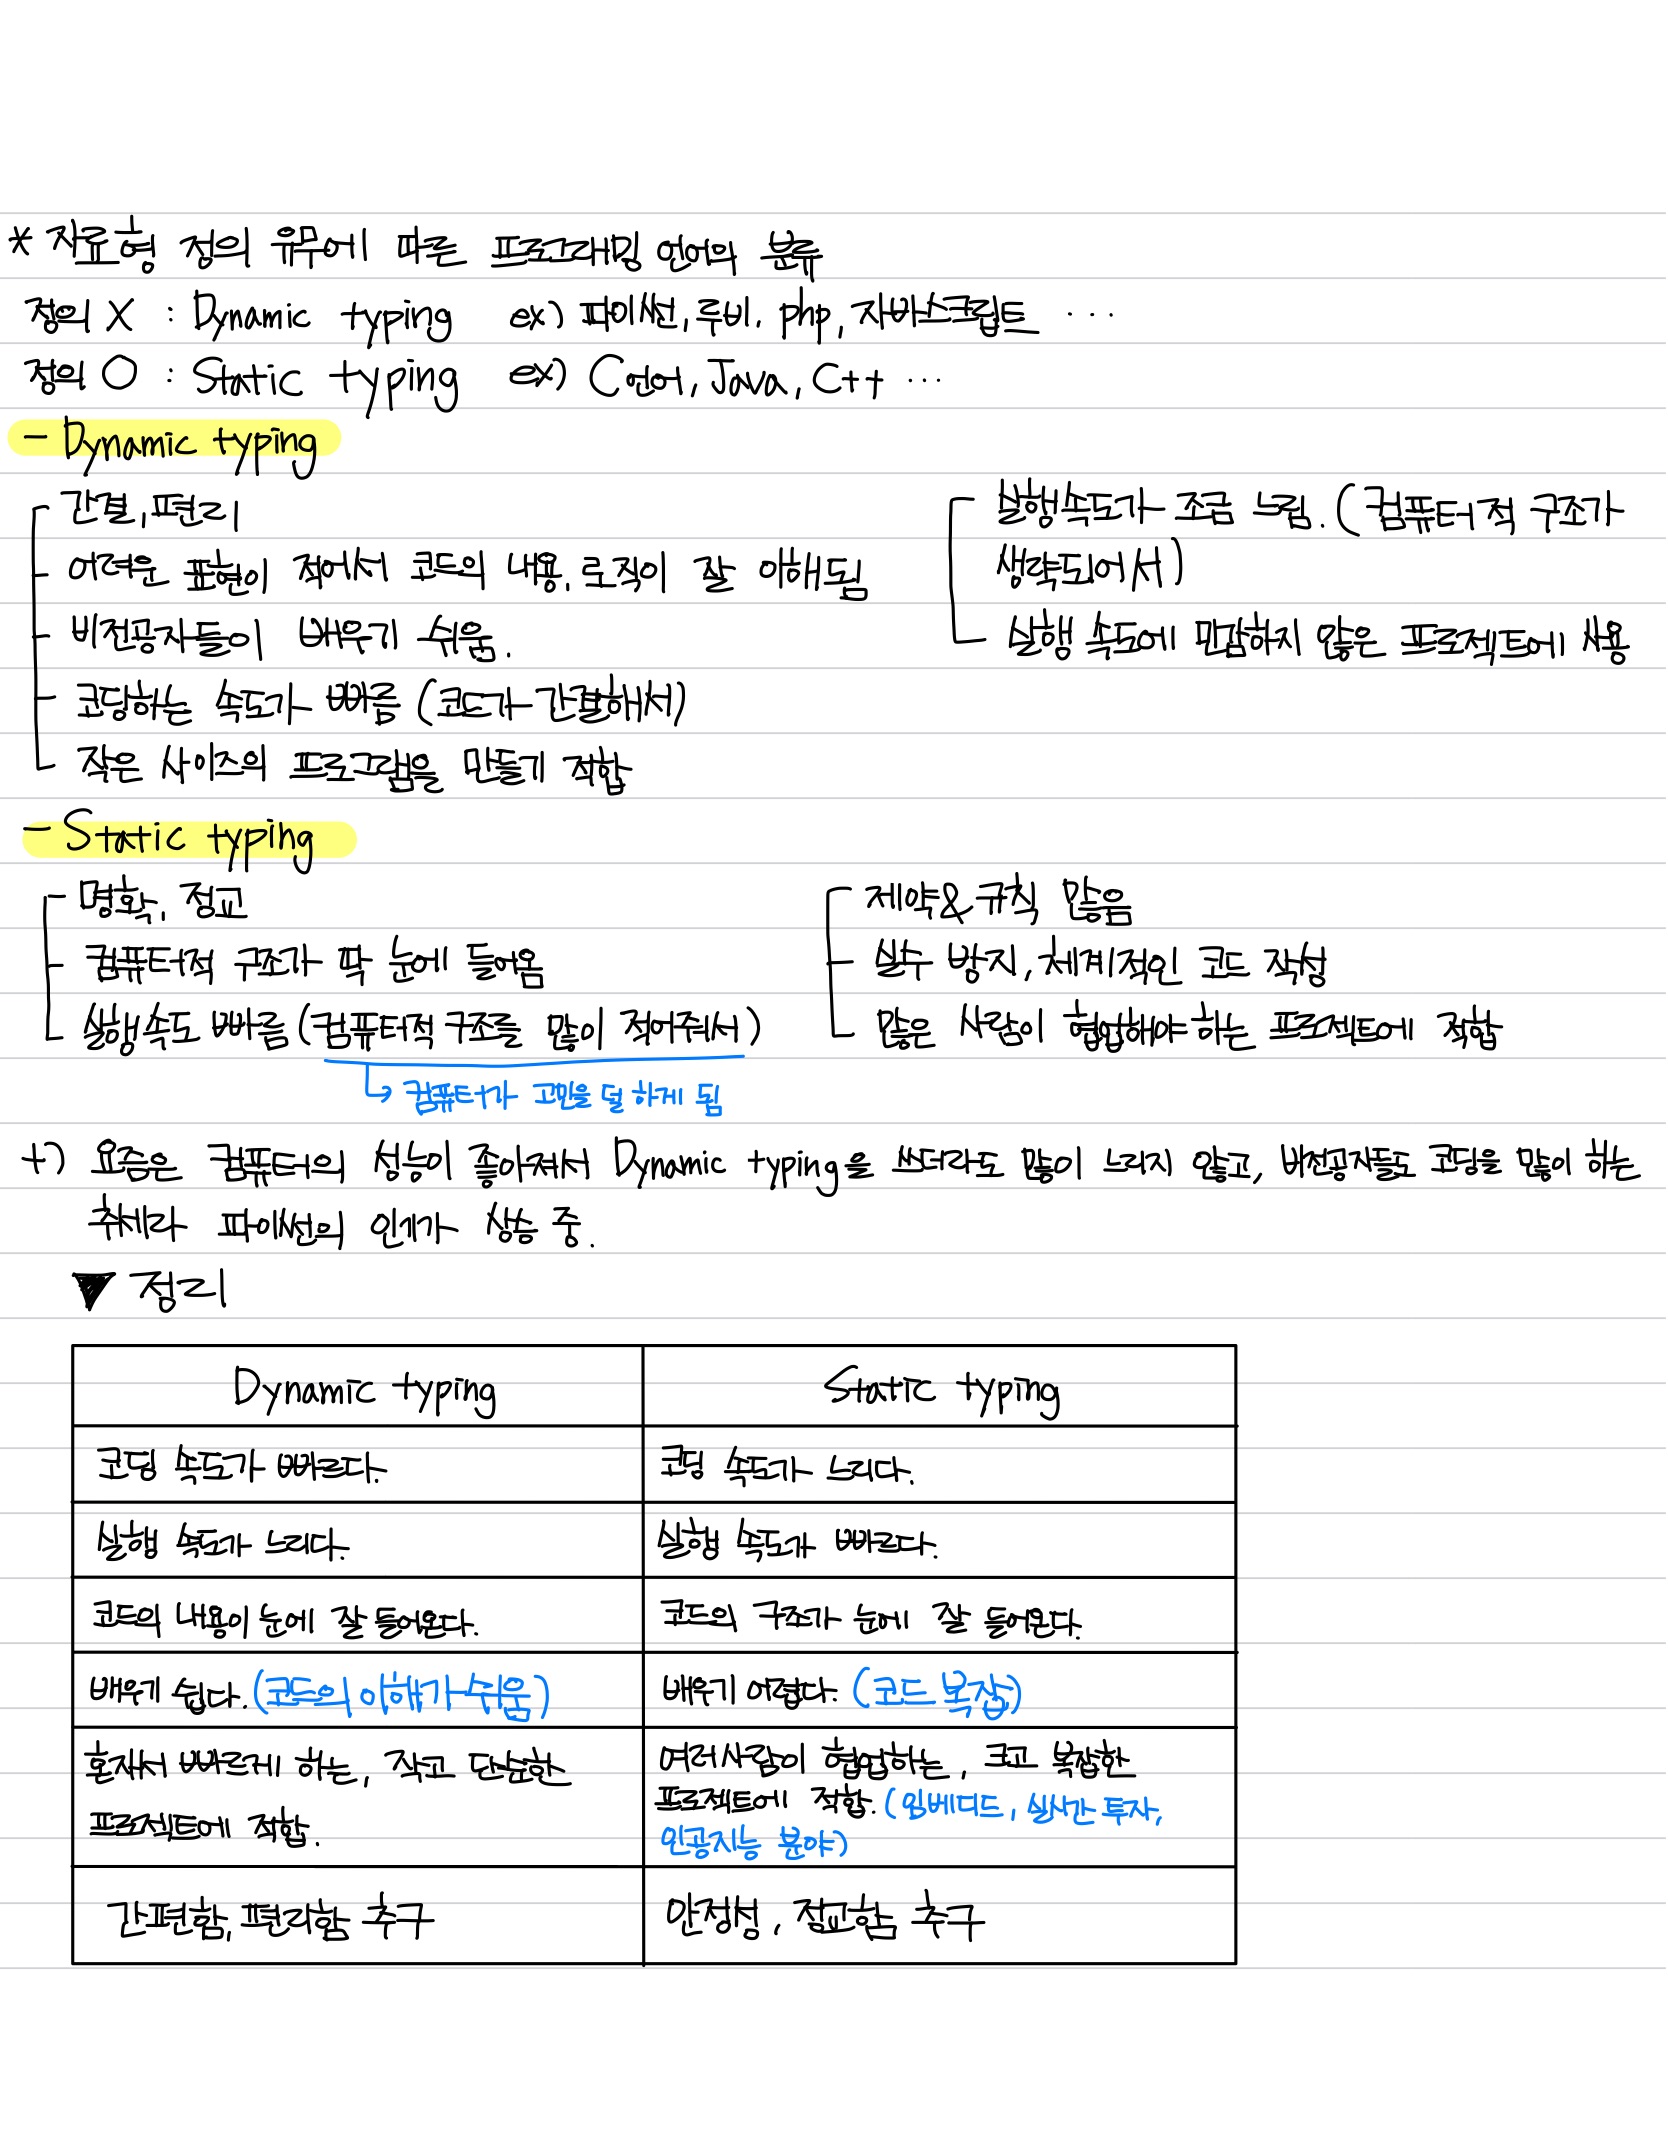 * 자료형 정의 유무에 따른 프로그래밍 언어의 분류
정의 X : Dynamic typing ex) 파이썬, 루비, php, 자바스크립트 ...
정의 O : Static typing ex) C언어, Java, C++ ...
- Dynamic typing
간결, 편리
어려운 표현이 적어서 코드의 내용, 로직이 잘 이해됨
비전공자들이 배우기 쉬움.
코딩하는 속도가 빠름 (코드가 간결해서)
작은 사이즈의 프로그램을 만들기 적합
실행속도가 조금 느림. (컴퓨터적 구조가
생략되어서)
실행 속도에 민감하지 않은 프로젝트에 사용
- Static typing
명확, 정교
컴퓨터적 구조가 딱 눈에 들어옴
실행속도 빠름 (컴퓨터적 구조를 많이 적어줘서)
↳ 컴퓨터가 고민을 덜 하게 됨
제약&규칙 많음
실수 방지, 체계적인 코드 작성
많은 사람이 협업해야 하는 프로젝트에 적합
+) 요즘은 컴퓨터의 성능이 좋아져서 Dynamic typing을 쓰더라도 많이 느리지 않고, 비전공자들도 코딩을 많이 하는
추세라 파이썬의 인기가 상승 중.
▼ 정리
Dynamic typing Static typing
코딩 속도가 빠르다. 코딩 속도가 느리다.
실행 속도가 느리다. 실행 속도가 빠르다.
코드의 내용이 눈에 잘 들어온다. 코드의 구조가 눈에 잘 들어온다.
배우기 쉽다. (코드의 이해가 쉬움) 배우기 어렵다. (코드 복잡)
혼자서 빠르게 하는, 작고 단순한
프로젝트에 적합.
여러사람이 협업하는, 크고 복잡한
프로젝트에 적합. (임베디드, 실시간 투자,
인공지능 분야)
간편함, 편리함 추구 안정성, 정교함 추구